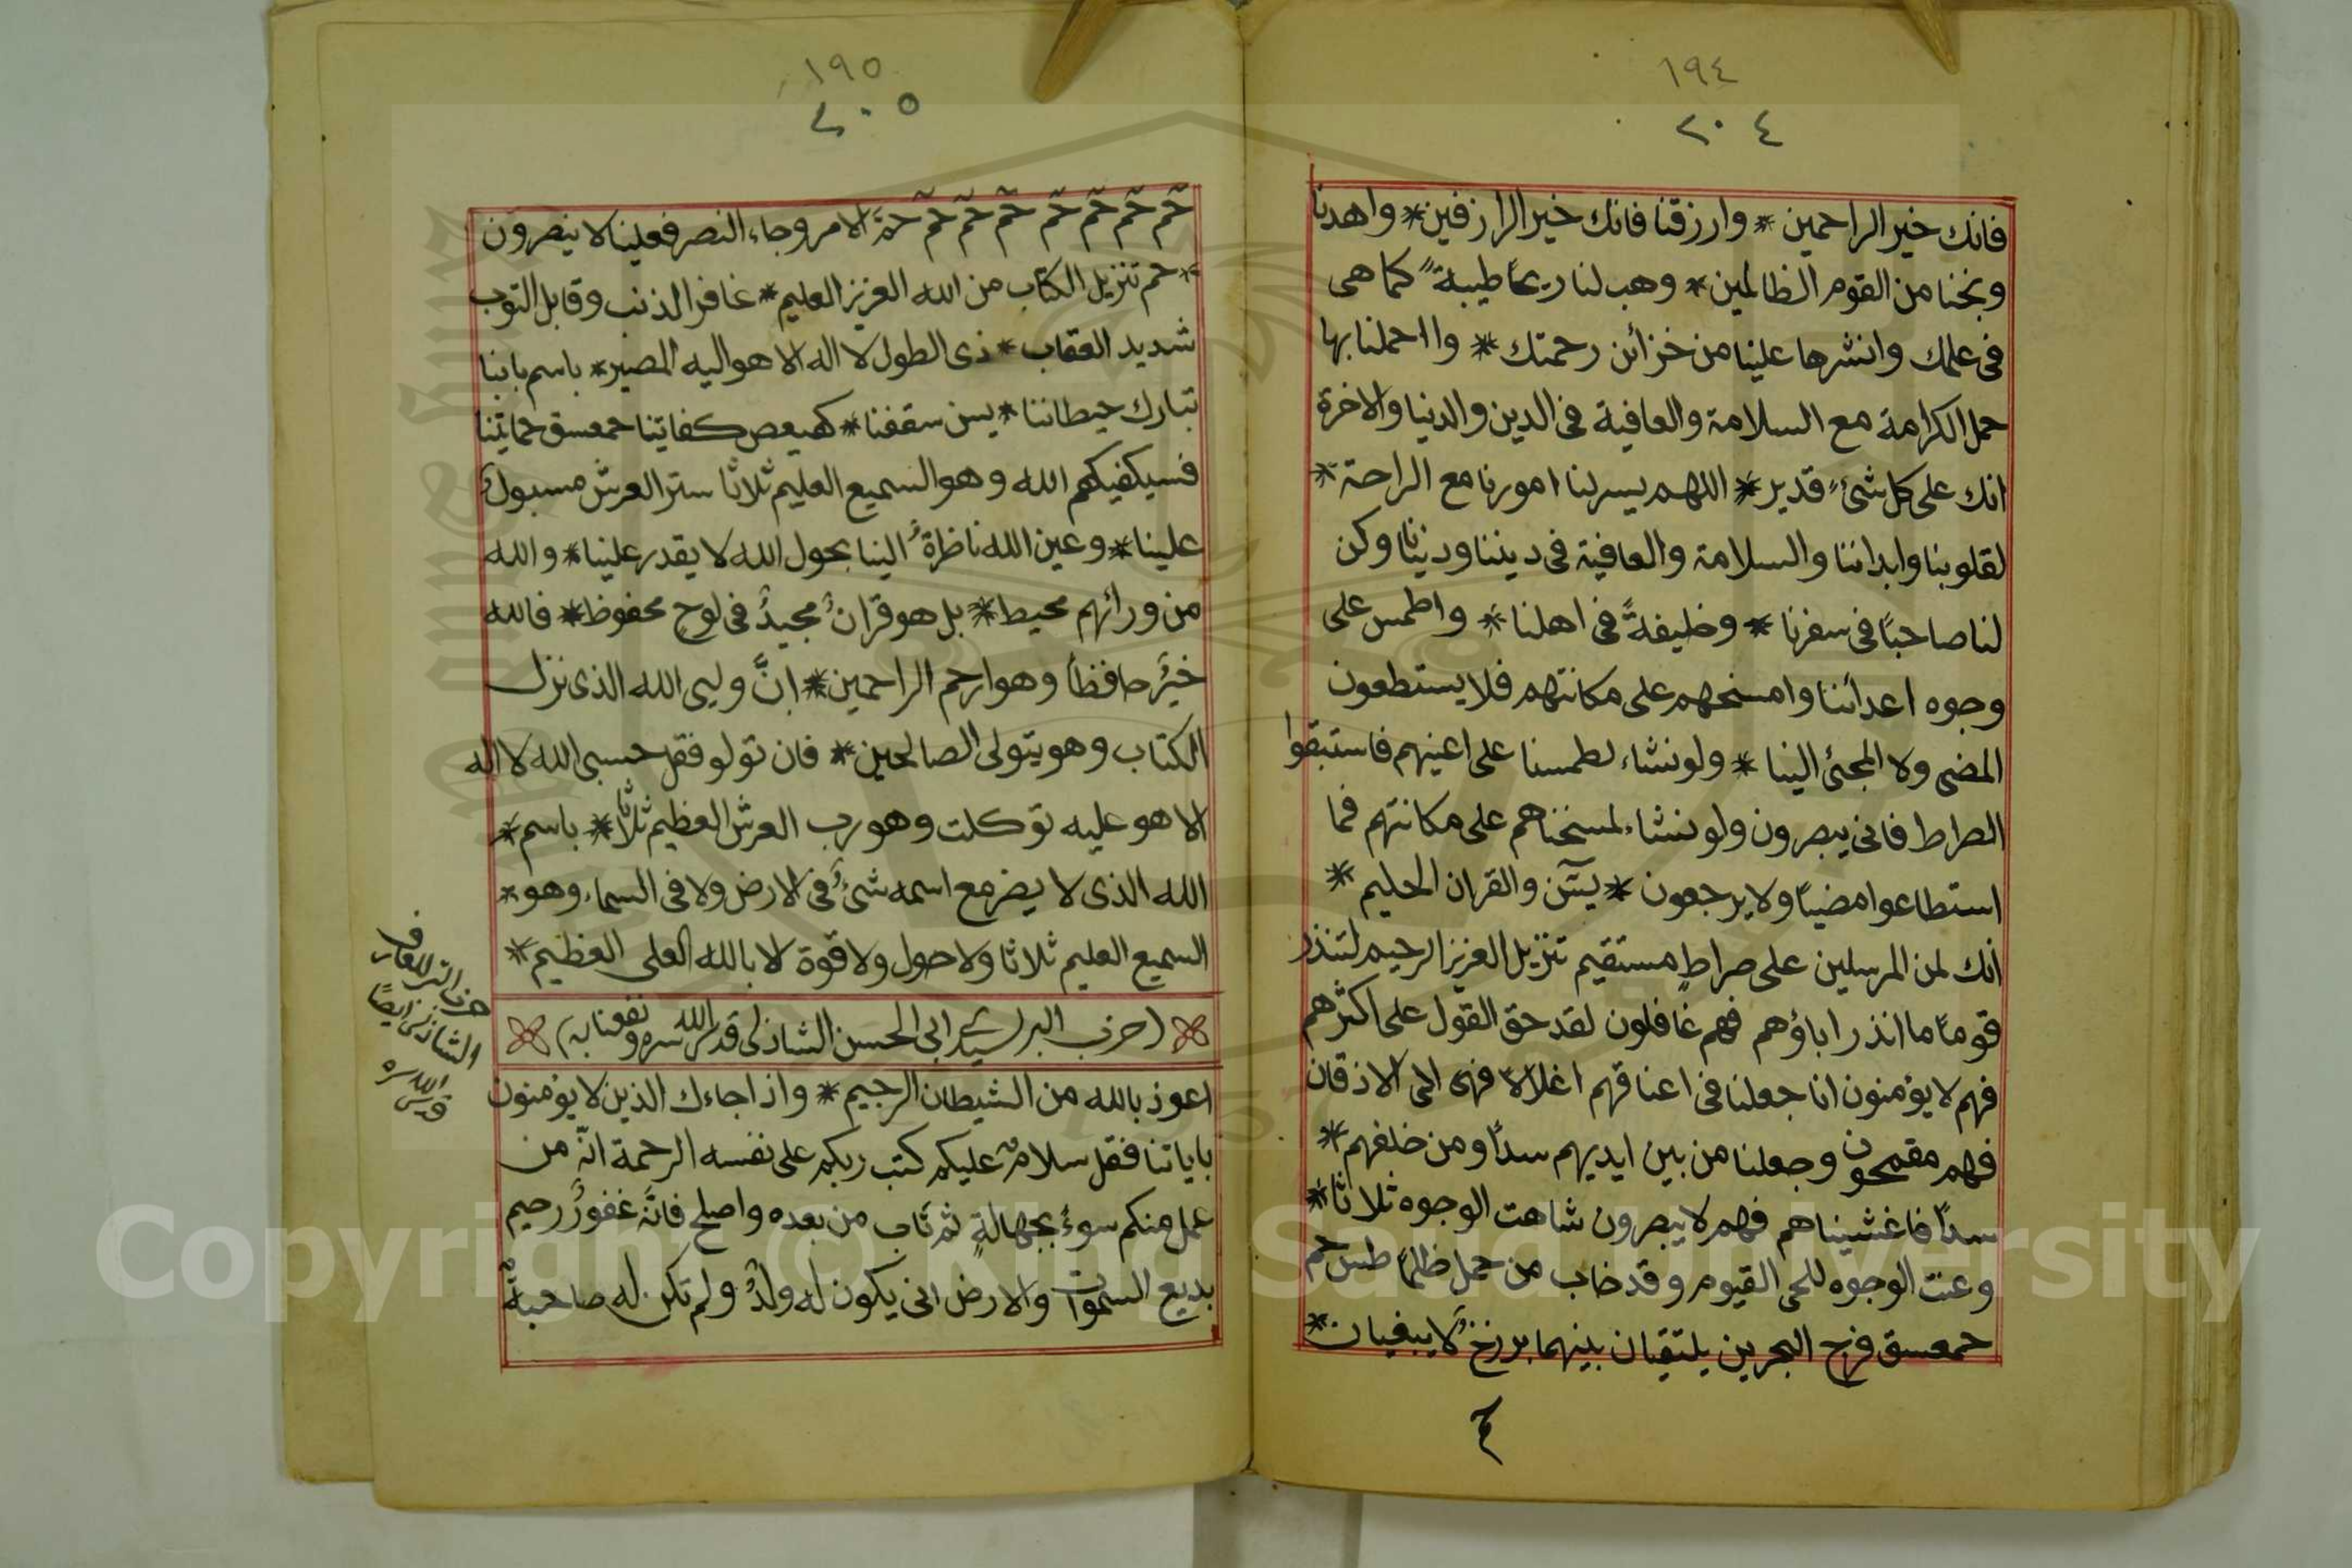 ١٩٤
٢٠٤
فانك خير الراحمين * وارزقنا فانك خير الرازقين * واهدنا
ونجنا من القوم الظالمين * وهب لنا ريحاً طيبةً كما هى
فى علمك وانشرها علينا من خزائن رحمتك * واحملنا بها
حمل الكرامة مع السلامة والعافية فى الدين والدنيا والاخرة
انك على كل شئٍ قدير * اللهم يسر لنا امورنا مع الراحة *
لقلوبنا وابداننا والسلامة والعافية فى ديننا ودنيانا وكن
لنا صاحباً فى سفرنا * وخليفةً فى اهلنا * واطمس على
وجوه اعدائنا وامسخهم على مكانتهم فلا يستطعون
المضى ولا المجئ الينا * ولو نشاء لطمسنا على اعينهم فاستبقوا
الصراط فانى يبصرون ولو نشاء لمسخناهم على مكانتهم فما
استطاعوا مضياً ولا يرجعون * يسٓ والقران الحكيم *
انك لمن المرسلين على صراطٍ مستقيم تنزيل العزيز الرحيم لتنذر
قوماً ما انذر اباؤهم فهم غافلون لقد حق القول على اكثرهم
فهم لا يؤمنون انا جعلنا فى اعناقهم اغلالاً فهى الى الاذقان
فهم مقمحون وجعلنا من بين ايديهم سداً ومن خلفهم *
سداً فاغشيناهم فهم لا يبصرون شاهت الوجوه ثلاثا *
وعنت الوجوه للحى القيوم وقد خاب من حمل ظلماً طس حم
حمعسق مرج البحرين يلتقيان بينهما برزخٌ لا يبغيان *
حم
١٩٥
٢٠٥
حٓم حٓم حٓم حٓم حٓم حٓم حٓم حمَّ الامر وجاء النصر فعلينا لا ينصرون
* حم تنزيل الكتاب من الله العزيز العليم * غافر الذنب وقابل التوب
شديد العقاب * ذى الطول لا اله الا هو اليه المصير * باسم بابنا
تبارك حيطاننا * يسن سقفنا * كهيعص كفاتينا حمعسق حماتينا
فسيكفيكهم الله وهو السميع العليم ثلاثا ستر العرش مسبول
علينا * وعين الله ناظرةٌ الينا بحول الله لا يقدر علينا * والله
من ورائهم محيط * بل هو قرانٌ مجيدٌ فى لوحٍ محفوظ * فالله
خيرٌ حافظاً وهو ارحم الراحمين * انَّ وليى الله الذى نزل
الكتاب وهو يتولى الصالحين * فان تولو فقل حسبى الله لا اله
الا هو عليه توكلت وهو رب العرش العظيم ثلاثا * باسم *
الله الذى لا يضر مع اسمه شئٌ فى الارض ولا فى السماء وهو *
السميع العليم ثلاثا ولا حول ولا قوة الا بالله العلى العظيم *
(حزب البر لسيدى ابى الحسن الشاذلى قدس الله سره ونفعنا به)
اعوذ بالله من الشيطان الرجيم * واذا جاءك الذين لا يؤمنون
باياتنا فقل سلامٌ عليكم كتب ربكم على نفسه الرحمة انّه من
عمل منكم سوءً بجهالةٍ ثم تاب من بعده واصلح فانّه غفورٌ رحيم
بديع السموات والارض انى يكون له ولدٌ ولم تكن له صاحبةٌ
حزب البر للعارف
الشاذلى ايضاً
قدس الله سره
Copyright © King Saud University